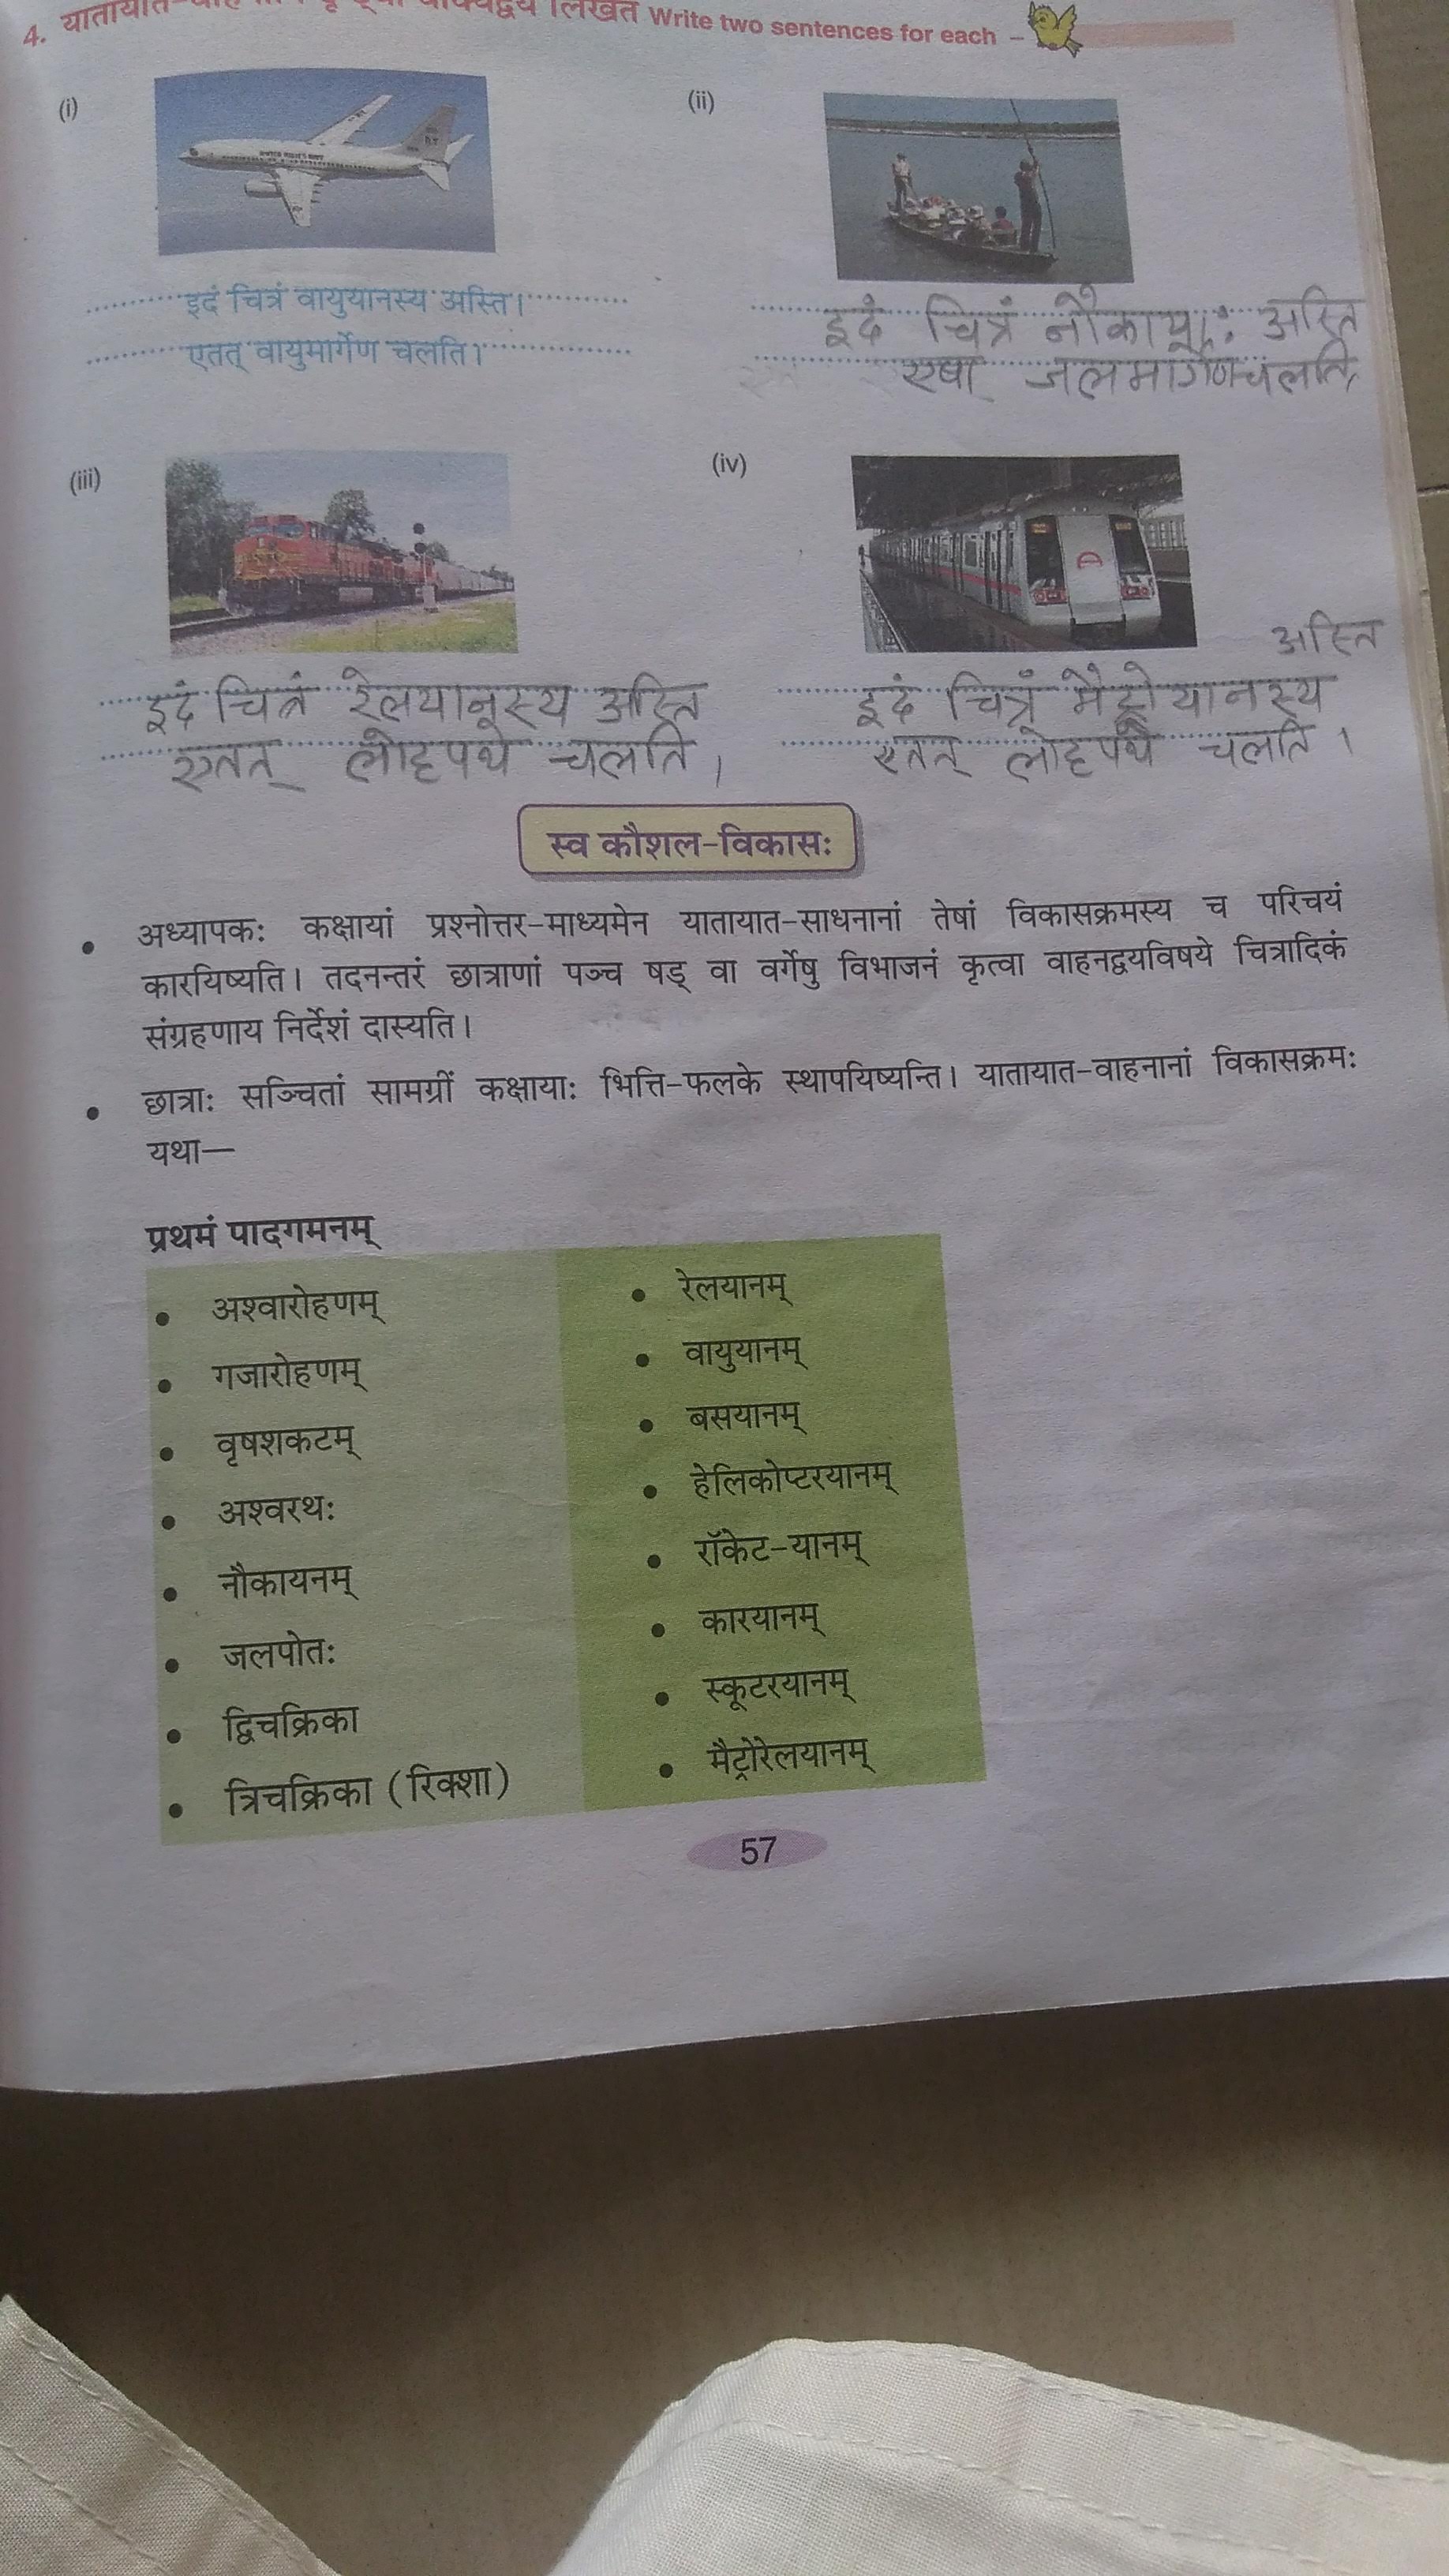 4. यातायात- लिखत Write two sentences for each –
(i)
(ii)
इदं चित्रं वायुयानस्य अस्ति।
एतत् वायुमार्गेण चलति।
इदं चित्रं नौकायाः अस्ति
एषा जलमार्गेण चलति
(iii)
(iv)
इदं चित्रं रेलयानस्य अस्ति
एतत् लोहपथे चलति।
अस्ति
इदं चित्रं मैट्रोयानस्य
एतत् लोहपथे चलति।
स्व कौशल-विकासः
• अध्यापकः कक्षायां प्रश्नोत्तर-माध्यमेन यातायात-साधनानां तेषां विकासक्रमस्य च परिचयं
कारयिष्यति। तदनन्तरं छात्राणां पञ्च षड् वा वर्गेषु विभाजनं कृत्वा वाहनद्वयविषये चित्रादिकं
संग्रहणाय निर्देशं दास्यति।
• छात्राः सञ्चितां सामग्रीं कक्षायाः भित्ति-फलके स्थापयिष्यन्ति। यातायात-वाहनानां विकासक्रमः
यथा—
प्रथमं पादगमनम्
• अश्वारोहणम्
• गजारोहणम्
• वृषशकटम्
• अश्वरथः
• नौकायनम्
• जलपोतः
• द्विचक्रिका
• त्रिचक्रिका (रिक्शा)
• रेलयानम्
• वायुयानम्
• बसयानम्
• हेलिकोप्टरयानम्
• रॉकेट-यानम्
• कारयानम्
• स्कूटरयानम्
• मैट्रोरेलयानम्
57